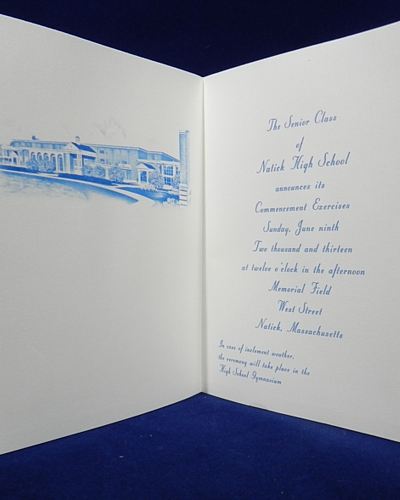 The Senior Class
of
Natick High School
announces its
Commencement Exercises
Sunday, June ninth
Two thousand and thirteen
at twelve o'clock in the afternoon
Memorial Field
West Street
Natick, Massachusetts
In case of inclement weather,
the ceremony will take place in the
High School Gymnasium